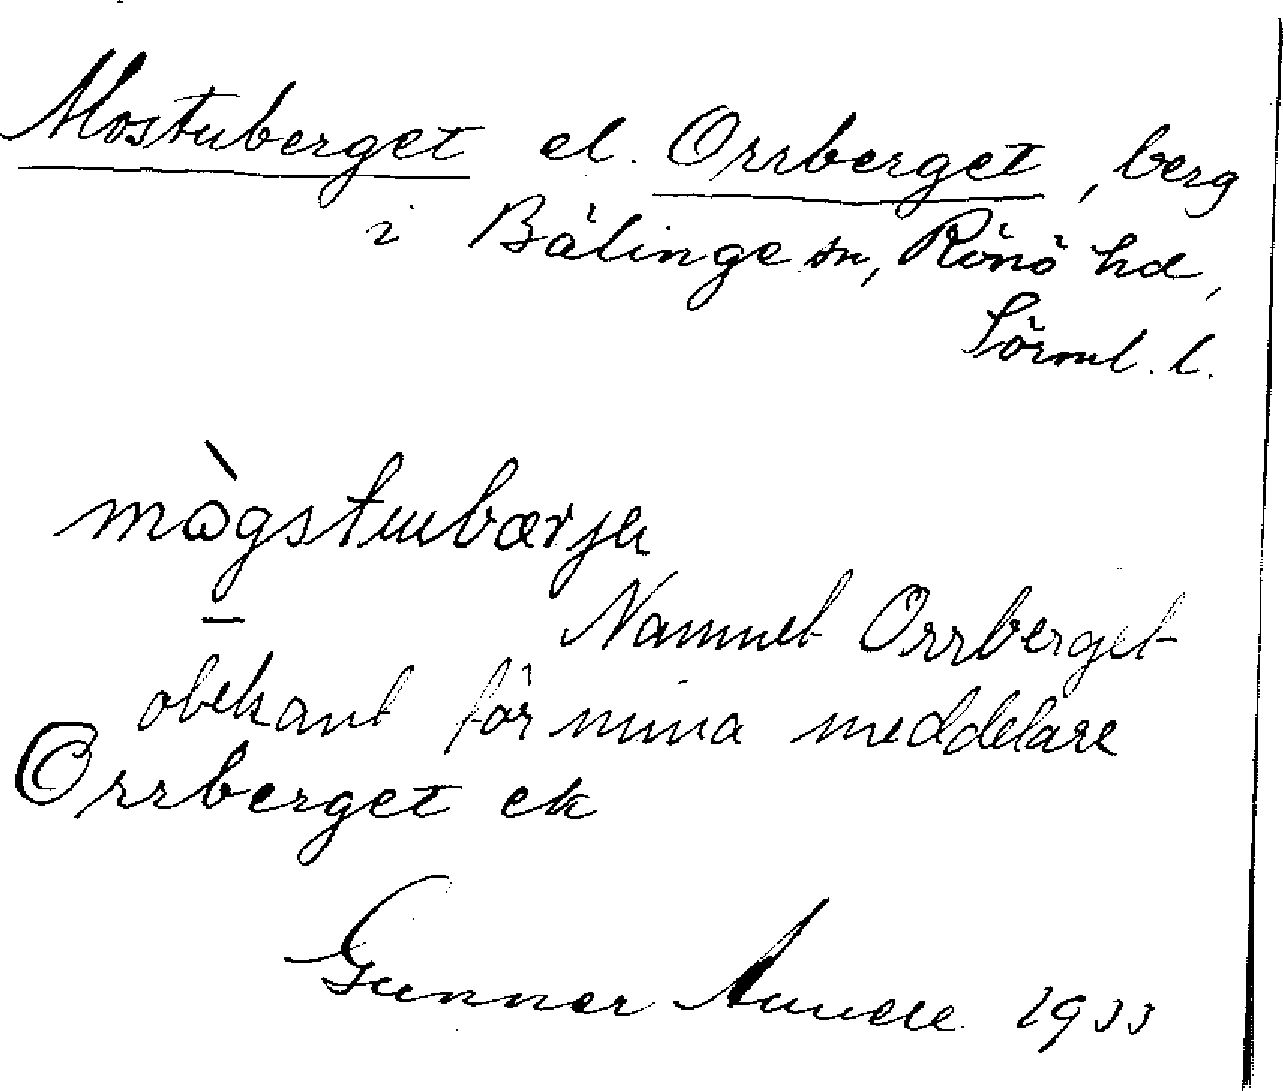 Mostuberget el. Orrberget, berg
i Bälinge sn, Rönö hd,
Sörml. l.
mògstubærjа
Namnet Orrberget
obekant för mina meddelare
Orrberget ek
Gunnar 1933